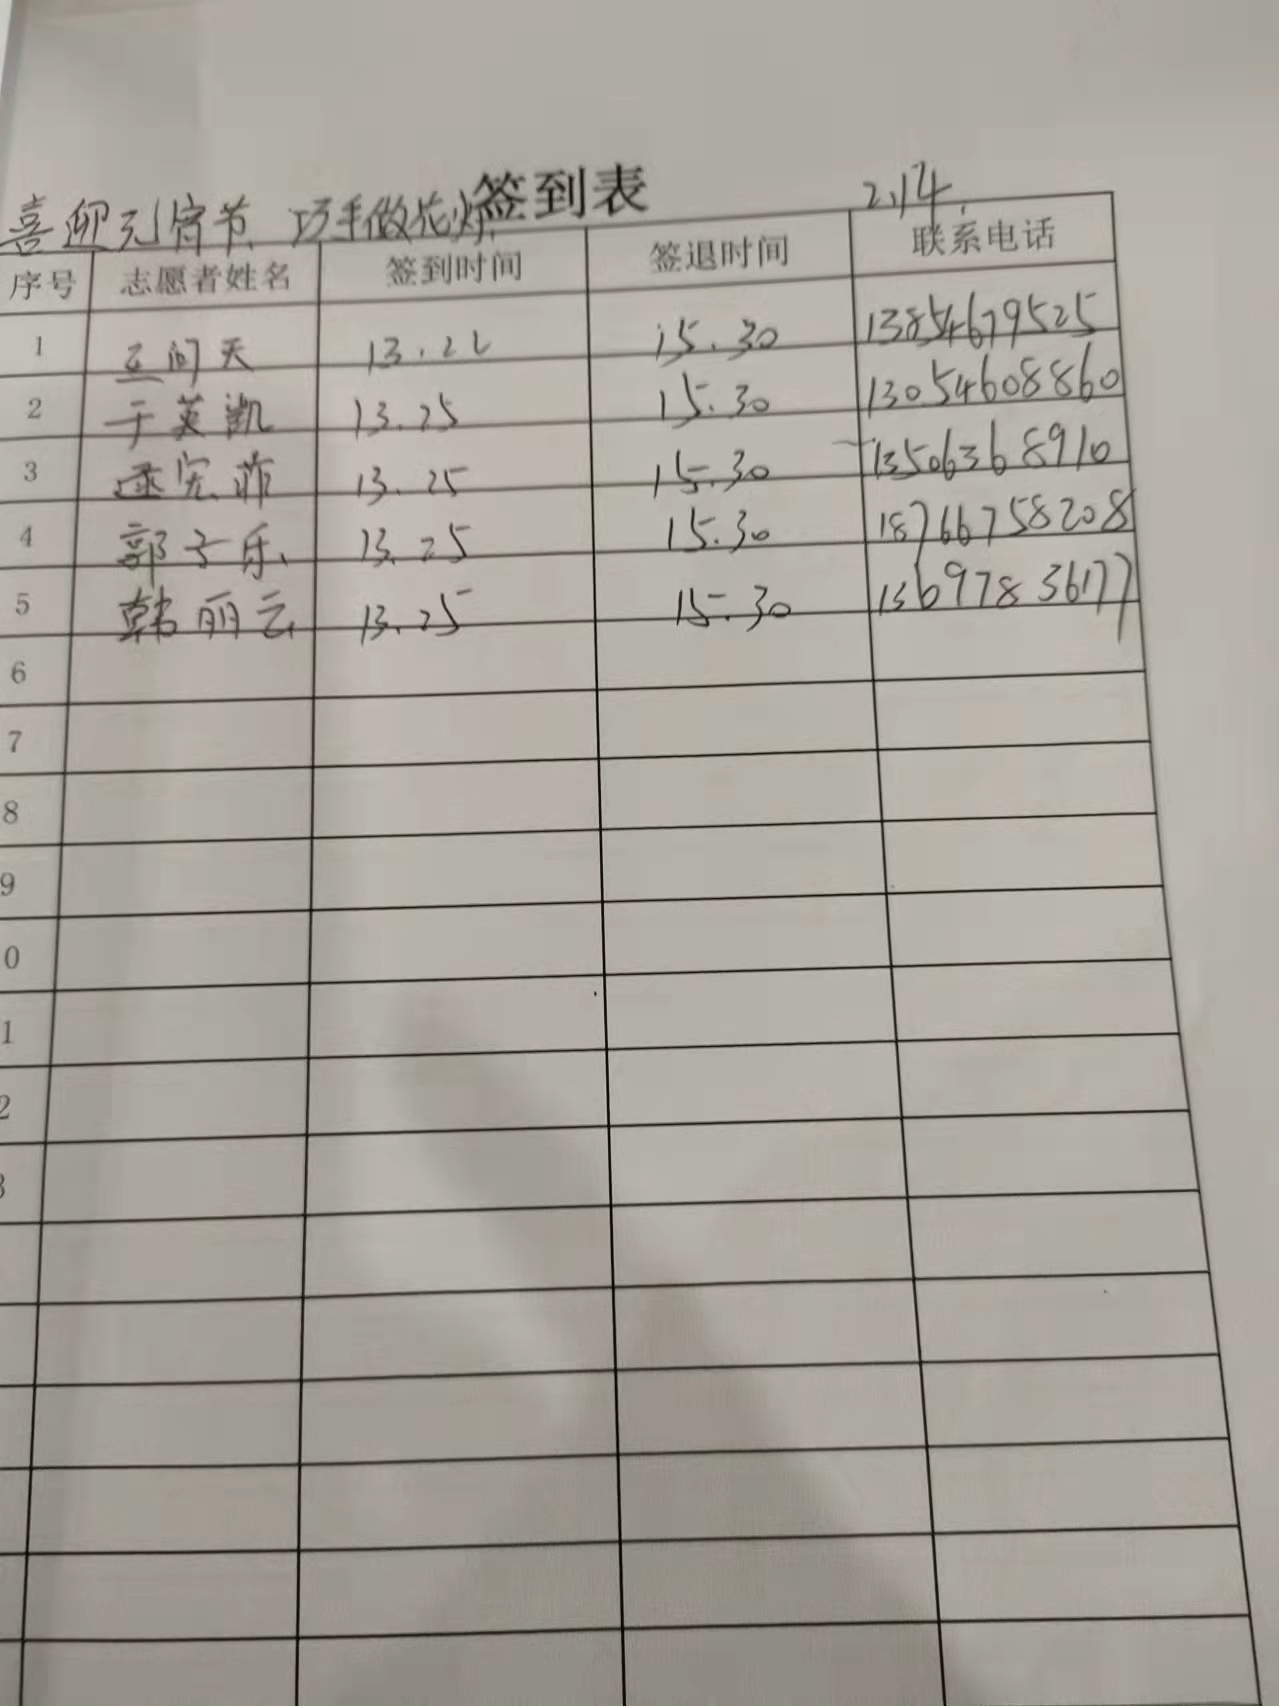 签到表
喜迎元宵节 巧手做花灯
2.14.
序号 志愿者姓名 签到时间 签退时间 联系电话
1 问天 15.30 13854679525
2 于英凯 13.25 15.30 13054608860
3 13.25 15.30 13506368910
4 郭子乐 13.25 15.30 18766758208
5 韩丽云 13.25 15.30 13697836177
6
7
8
9
0
1
2
3